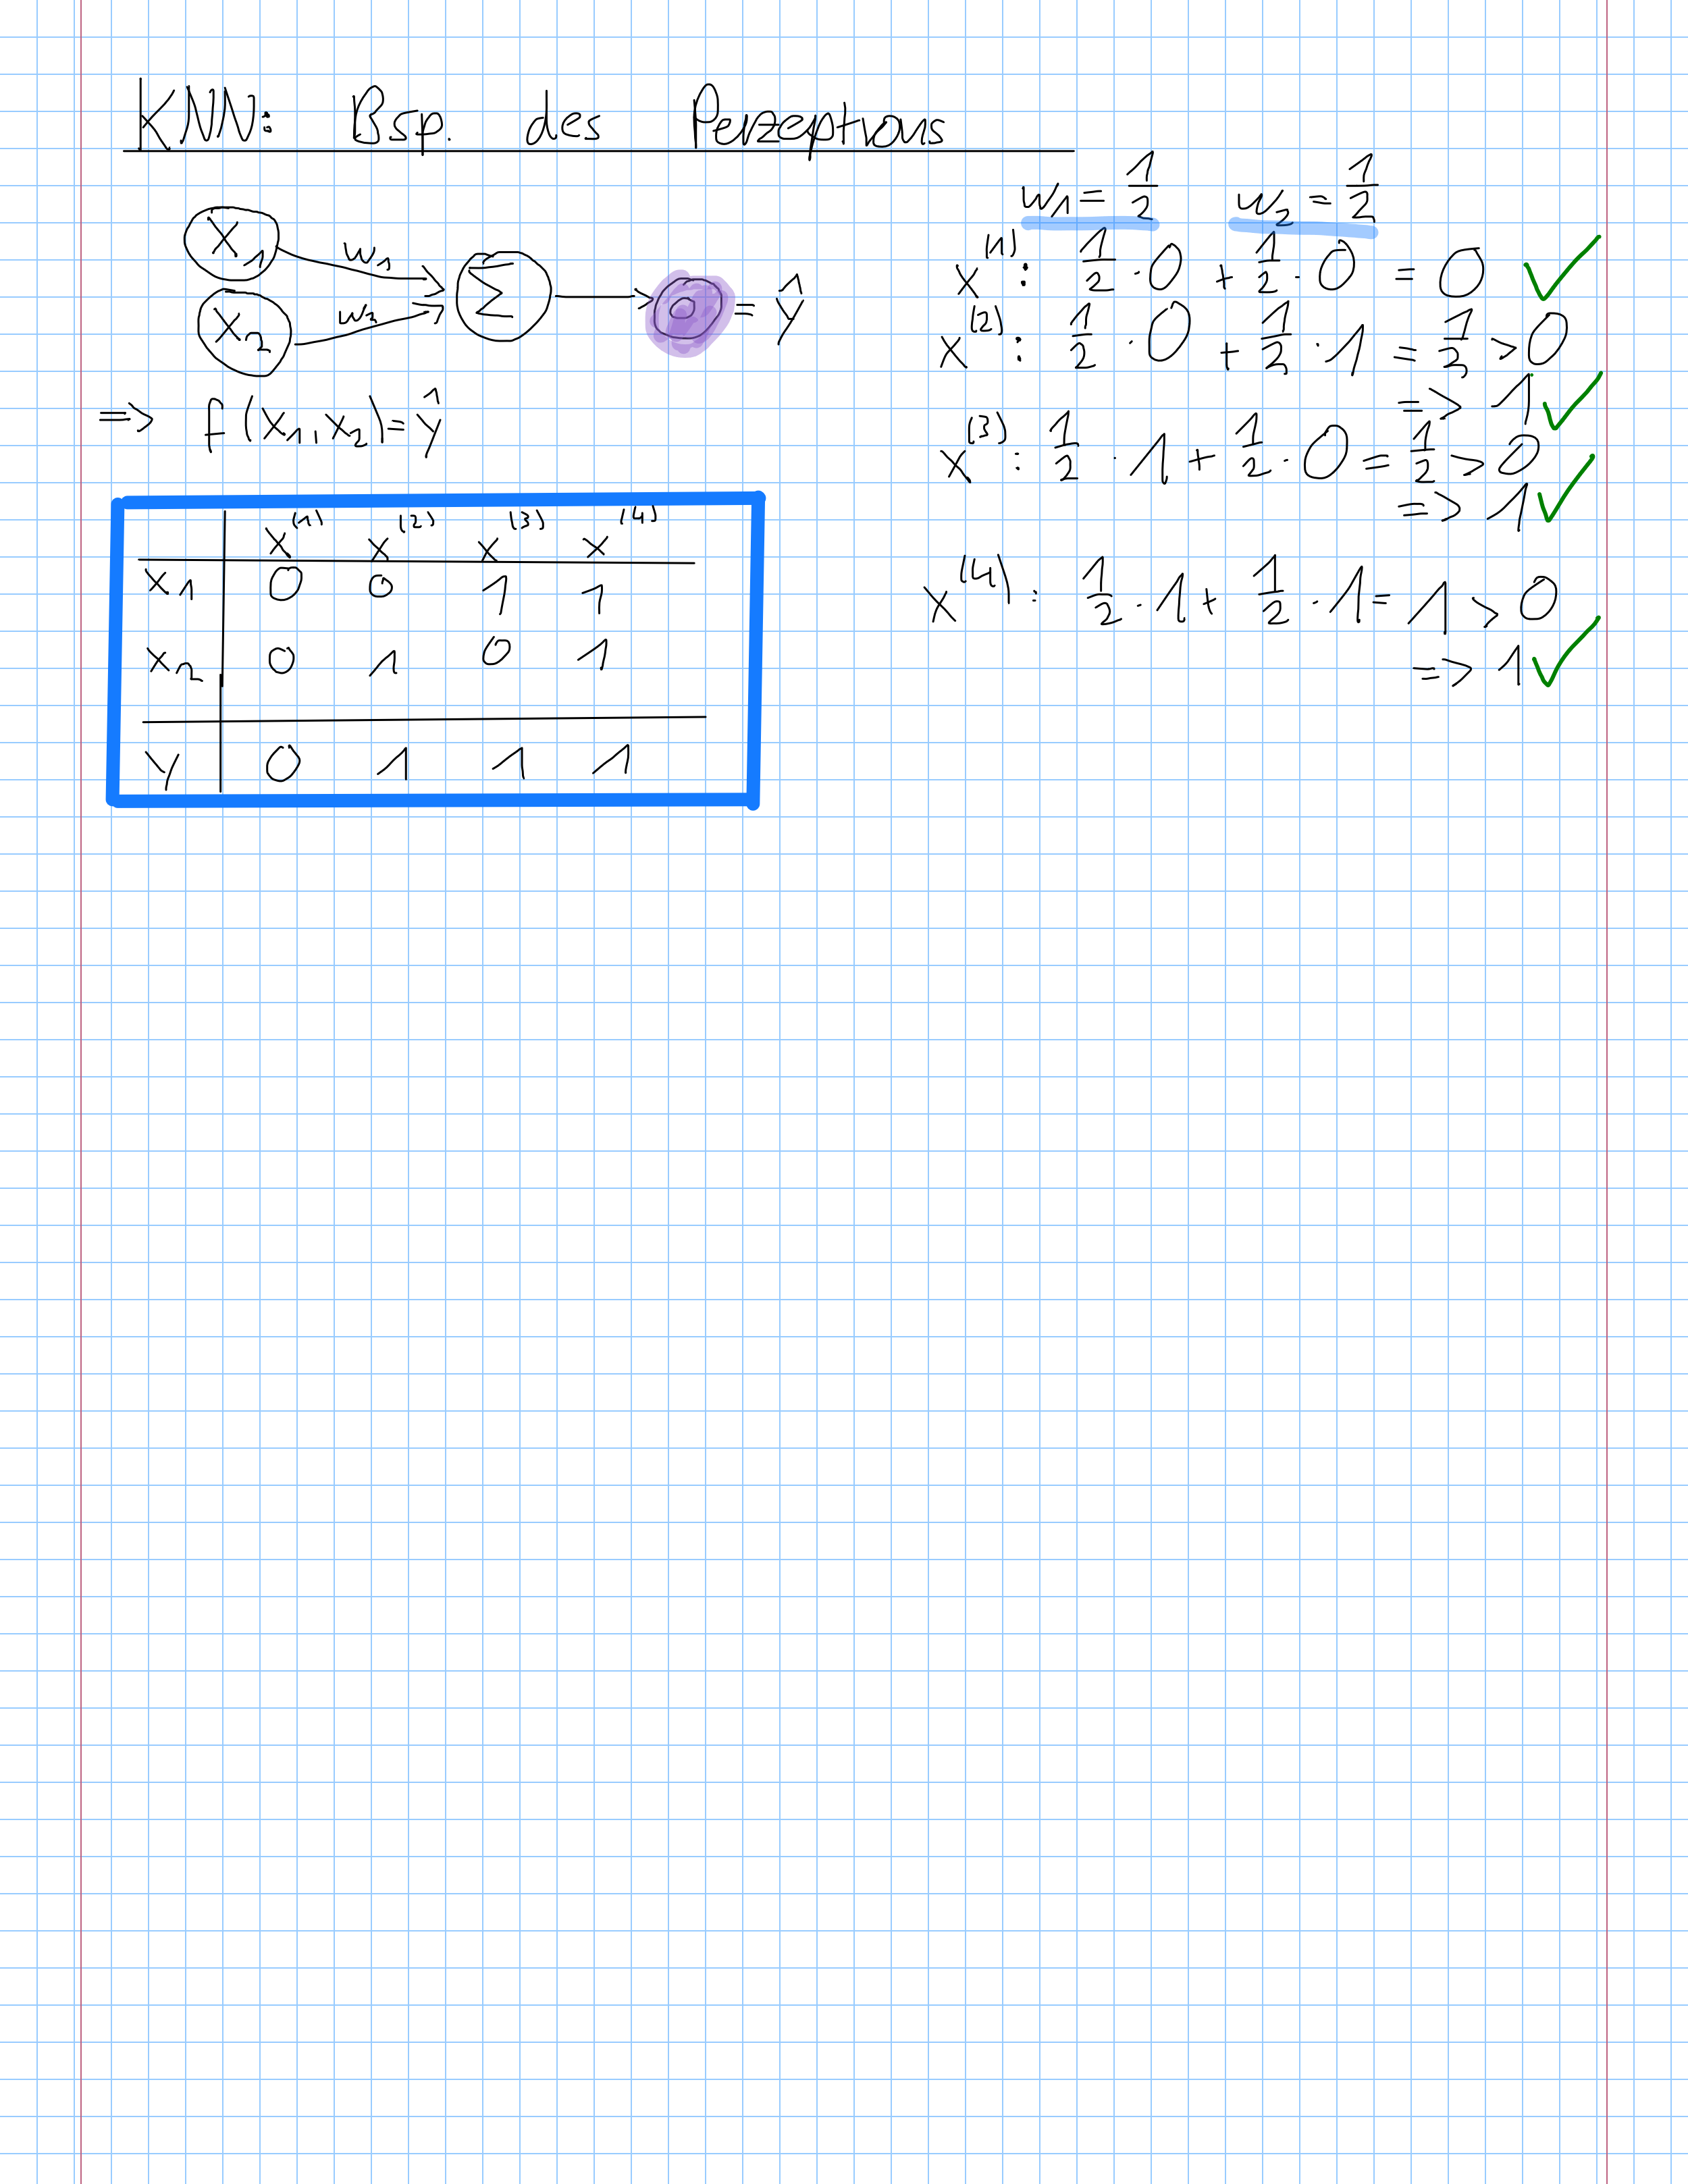 KNN: Bsp. des Perzeptrons
x₁ w₁
x₂ w₂
Σ
σ = ŷ
=> f(x₁, x₂) = ŷ
x⁽¹⁾ x⁽²⁾ x⁽³⁾ x⁽⁴⁾
x₁ 0 0 1 1
x₂ 0 1 0 1
y 0 1 1 1
w₁ = 1/2 w₂ = 1/2
x⁽¹⁾: 1/2 · 0 + 1/2 · 0 = 0 ✓
x⁽²⁾: 1/2 · 0 + 1/2 · 1 = 1/2 > 0
=> 1 ✓
x⁽³⁾: 1/2 · 1 + 1/2 · 0 = 1/2 > 0
=> 1 ✓
x⁽⁴⁾: 1/2 · 1 + 1/2 · 1 = 1 > 0
=> 1 ✓